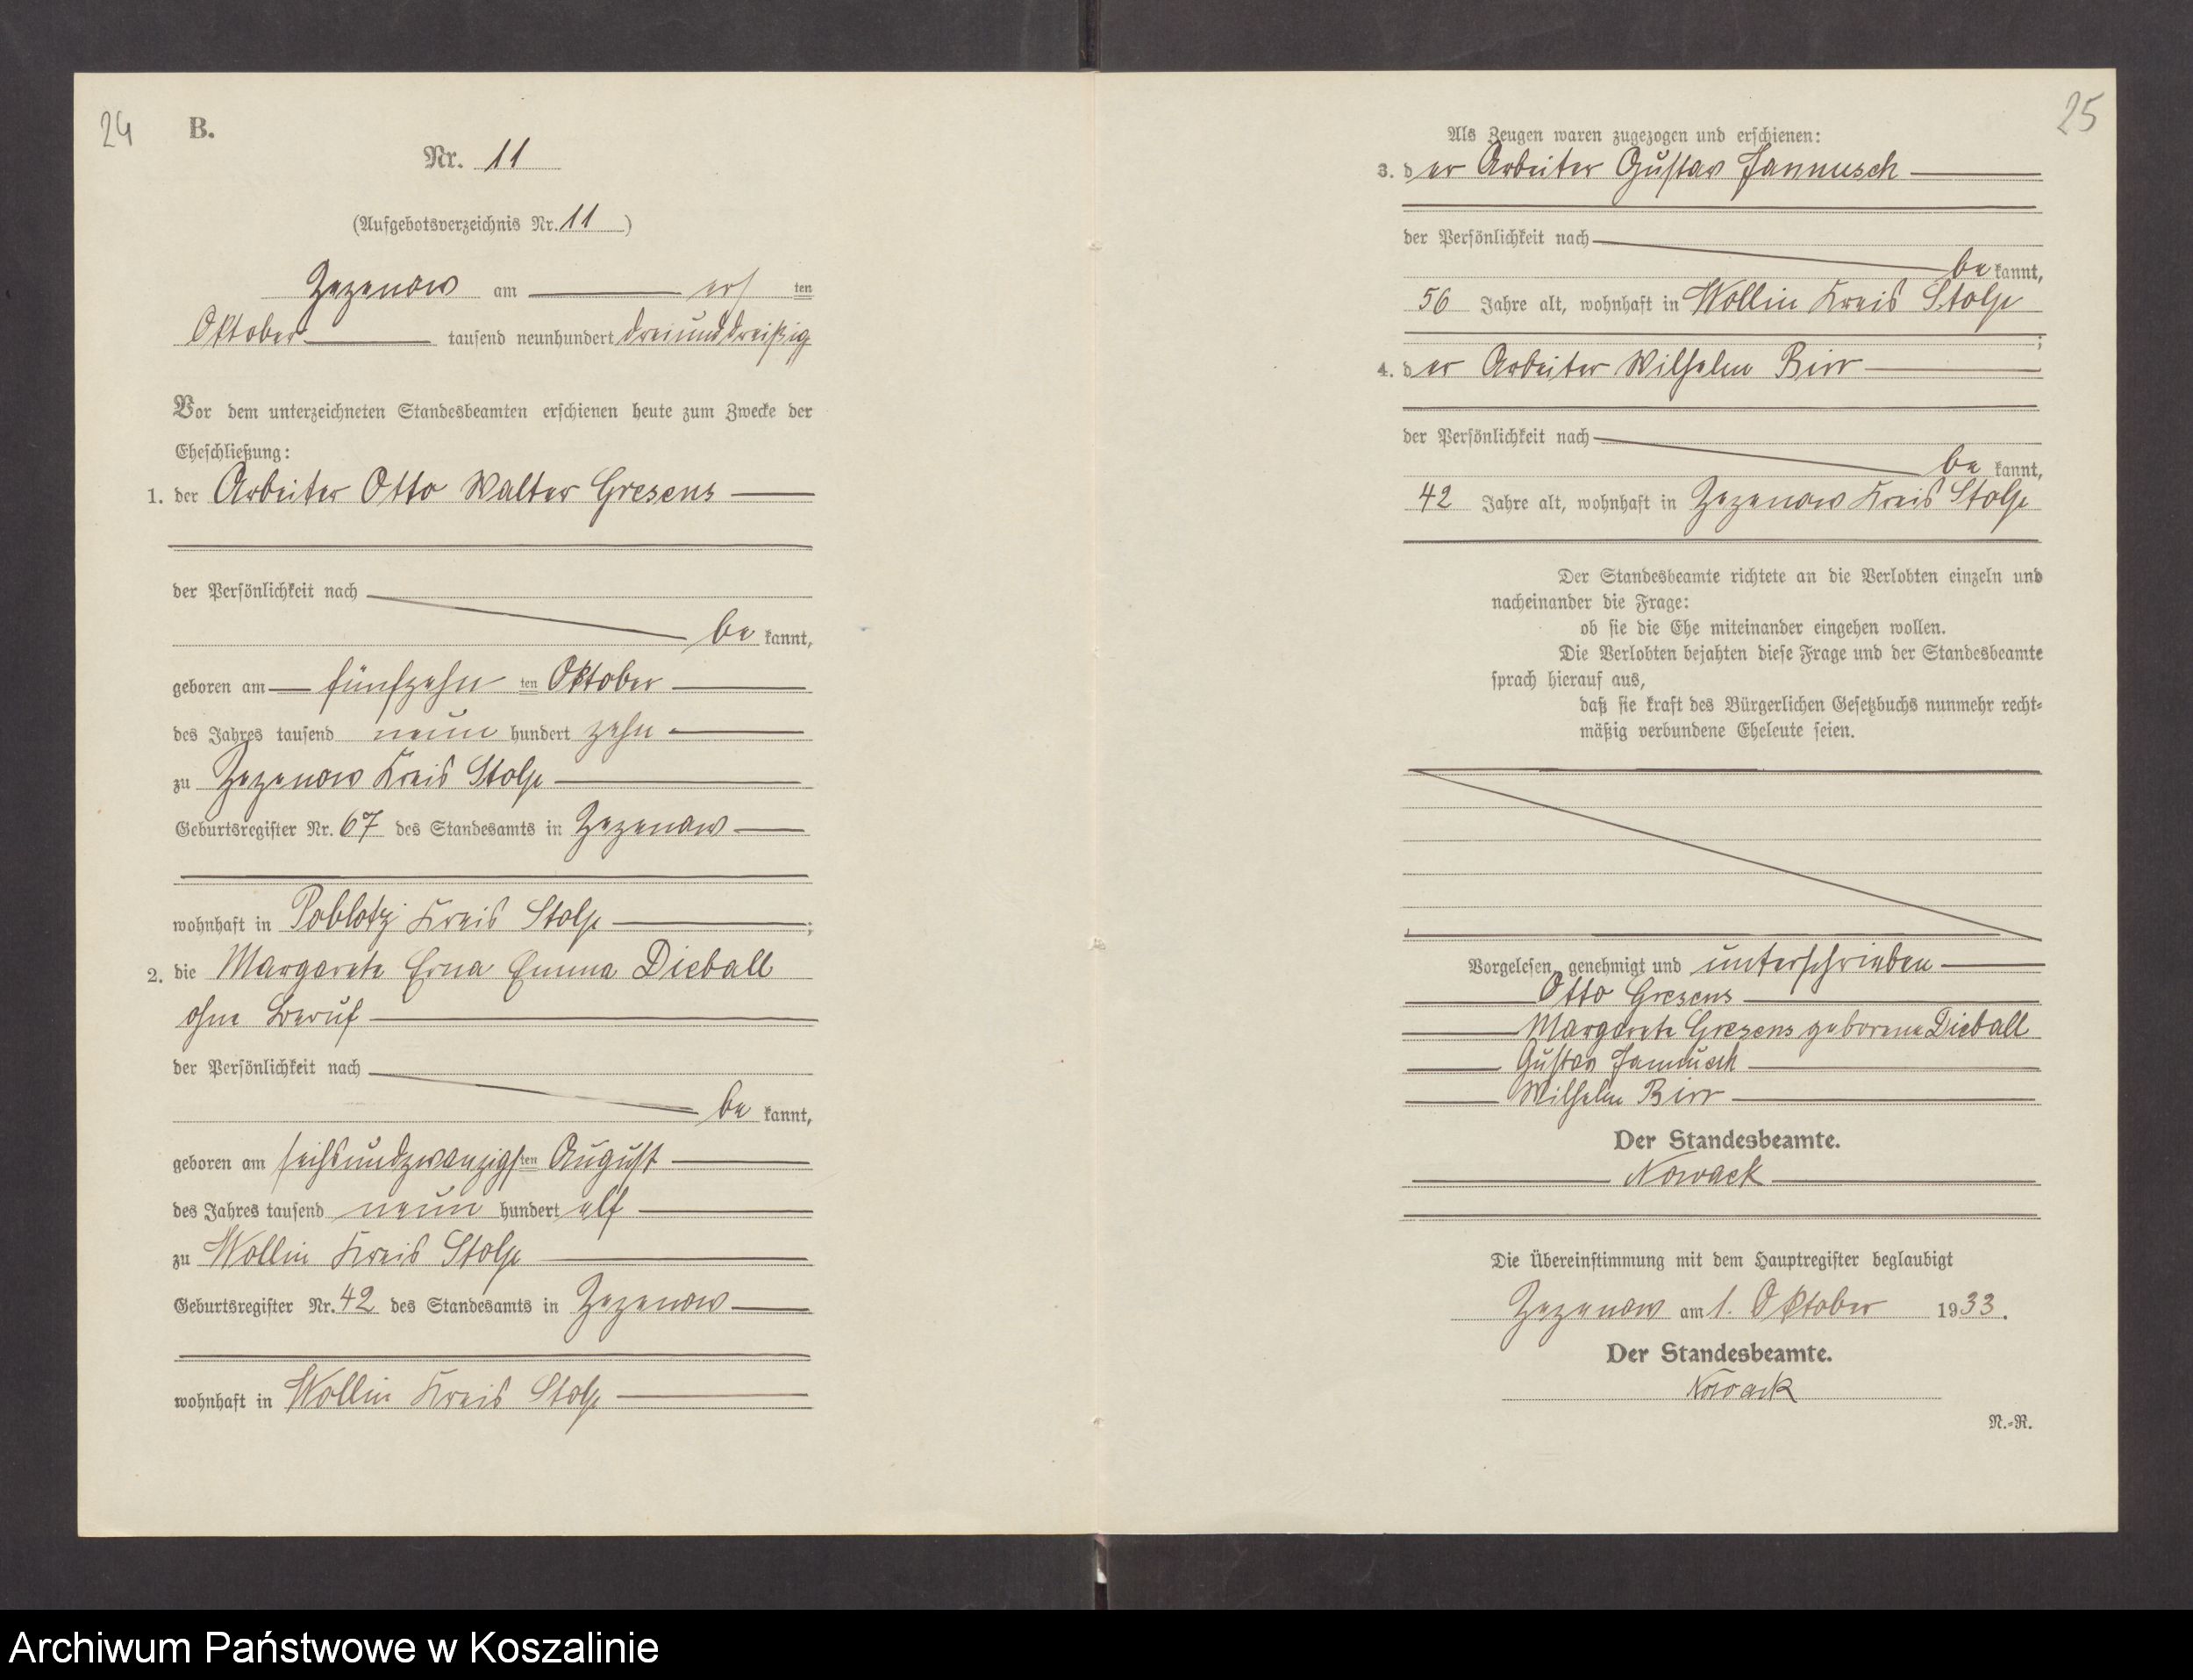 24
B.
Nr. 11
(Aufgebotsverzeichnis Nr. 11)
Zezenow am ersten
Oktober tausend neunhundert dreiunddreißig
Vor dem unterzeichneten Standesbeamten erschienen heute zum Zwecke der
Eheschließung:
1. der Arbeiter Otto Walter Gresens
der Persönlichkeit nach
bekannt,
geboren am fünfzehnten Oktober
des Jahres tausend neunhundert zehn
zu Zezenow Kreis Stolp
Geburtsregister Nr. 67 des Standesamts in Zezenow
wohnhaft in Poblotz Kreis Stolp;
2. die Margarete Erna Emma Dieball
ohne Beruf
der Persönlichkeit nach
bekannt,
geboren am sechsundzwanzigsten August
des Jahres tausend neunhundert elf
zu Wollin Kreis Stolp
Geburtsregister Nr. 42 des Standesamts in Zezenow
wohnhaft in Wollin Kreis Stolp
25
Als Zeugen waren zugezogen und erschienen:
3. der Arbeiter Gustav Jannusch
der Persönlichkeit nach
bekannt,
56 Jahre alt, wohnhaft in Wollin Kreis Stolp
;
4. der Arbeiter Wilhelm Birr
der Persönlichkeit nach
bekannt,
42 Jahre alt, wohnhaft in Zezenow Kreis Stolp
Der Standesbeamte richtete an die Verlobten einzeln und
nacheinander die Frage:
ob sie die Ehe miteinander eingehen wollen.
Die Verlobten bejahten diese Frage und der Standesbeamte
sprach hierauf aus,
daß sie kraft des Bürgerlichen Gesetzbuchs nunmehr recht-
mäßig verbundene Eheleute seien.
Vorgelesen, genehmigt und unterschrieben
Otto Gresens
Margarete Gresens geborene Dieball
Gustav Jannusch
Wilhelm Birr
Der Standesbeamte.
Nowack
Die Übereinstimmung mit dem Hauptregister beglaubigt
Zezenow am 1. Oktober 1933.
Der Standesbeamte.
Nowack
N.-R.
Archiwum Państwowe w Koszalinie